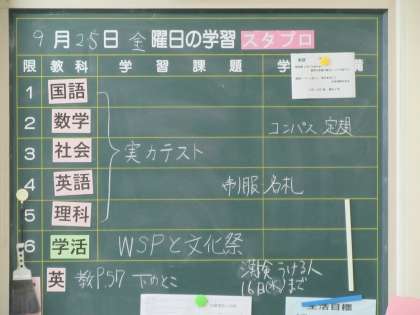 9月25日 金曜日の学習 スタプロ
限 教科 学習課題 学 備
1 国語
2 数学 コンパス 定規
3 社会 実力テスト
4 英語 制服 名札
5 理科
6 学活 WSPと文化祭
英 教P57 下のとこ 漢検うける人
16日(水)まで
生活目標